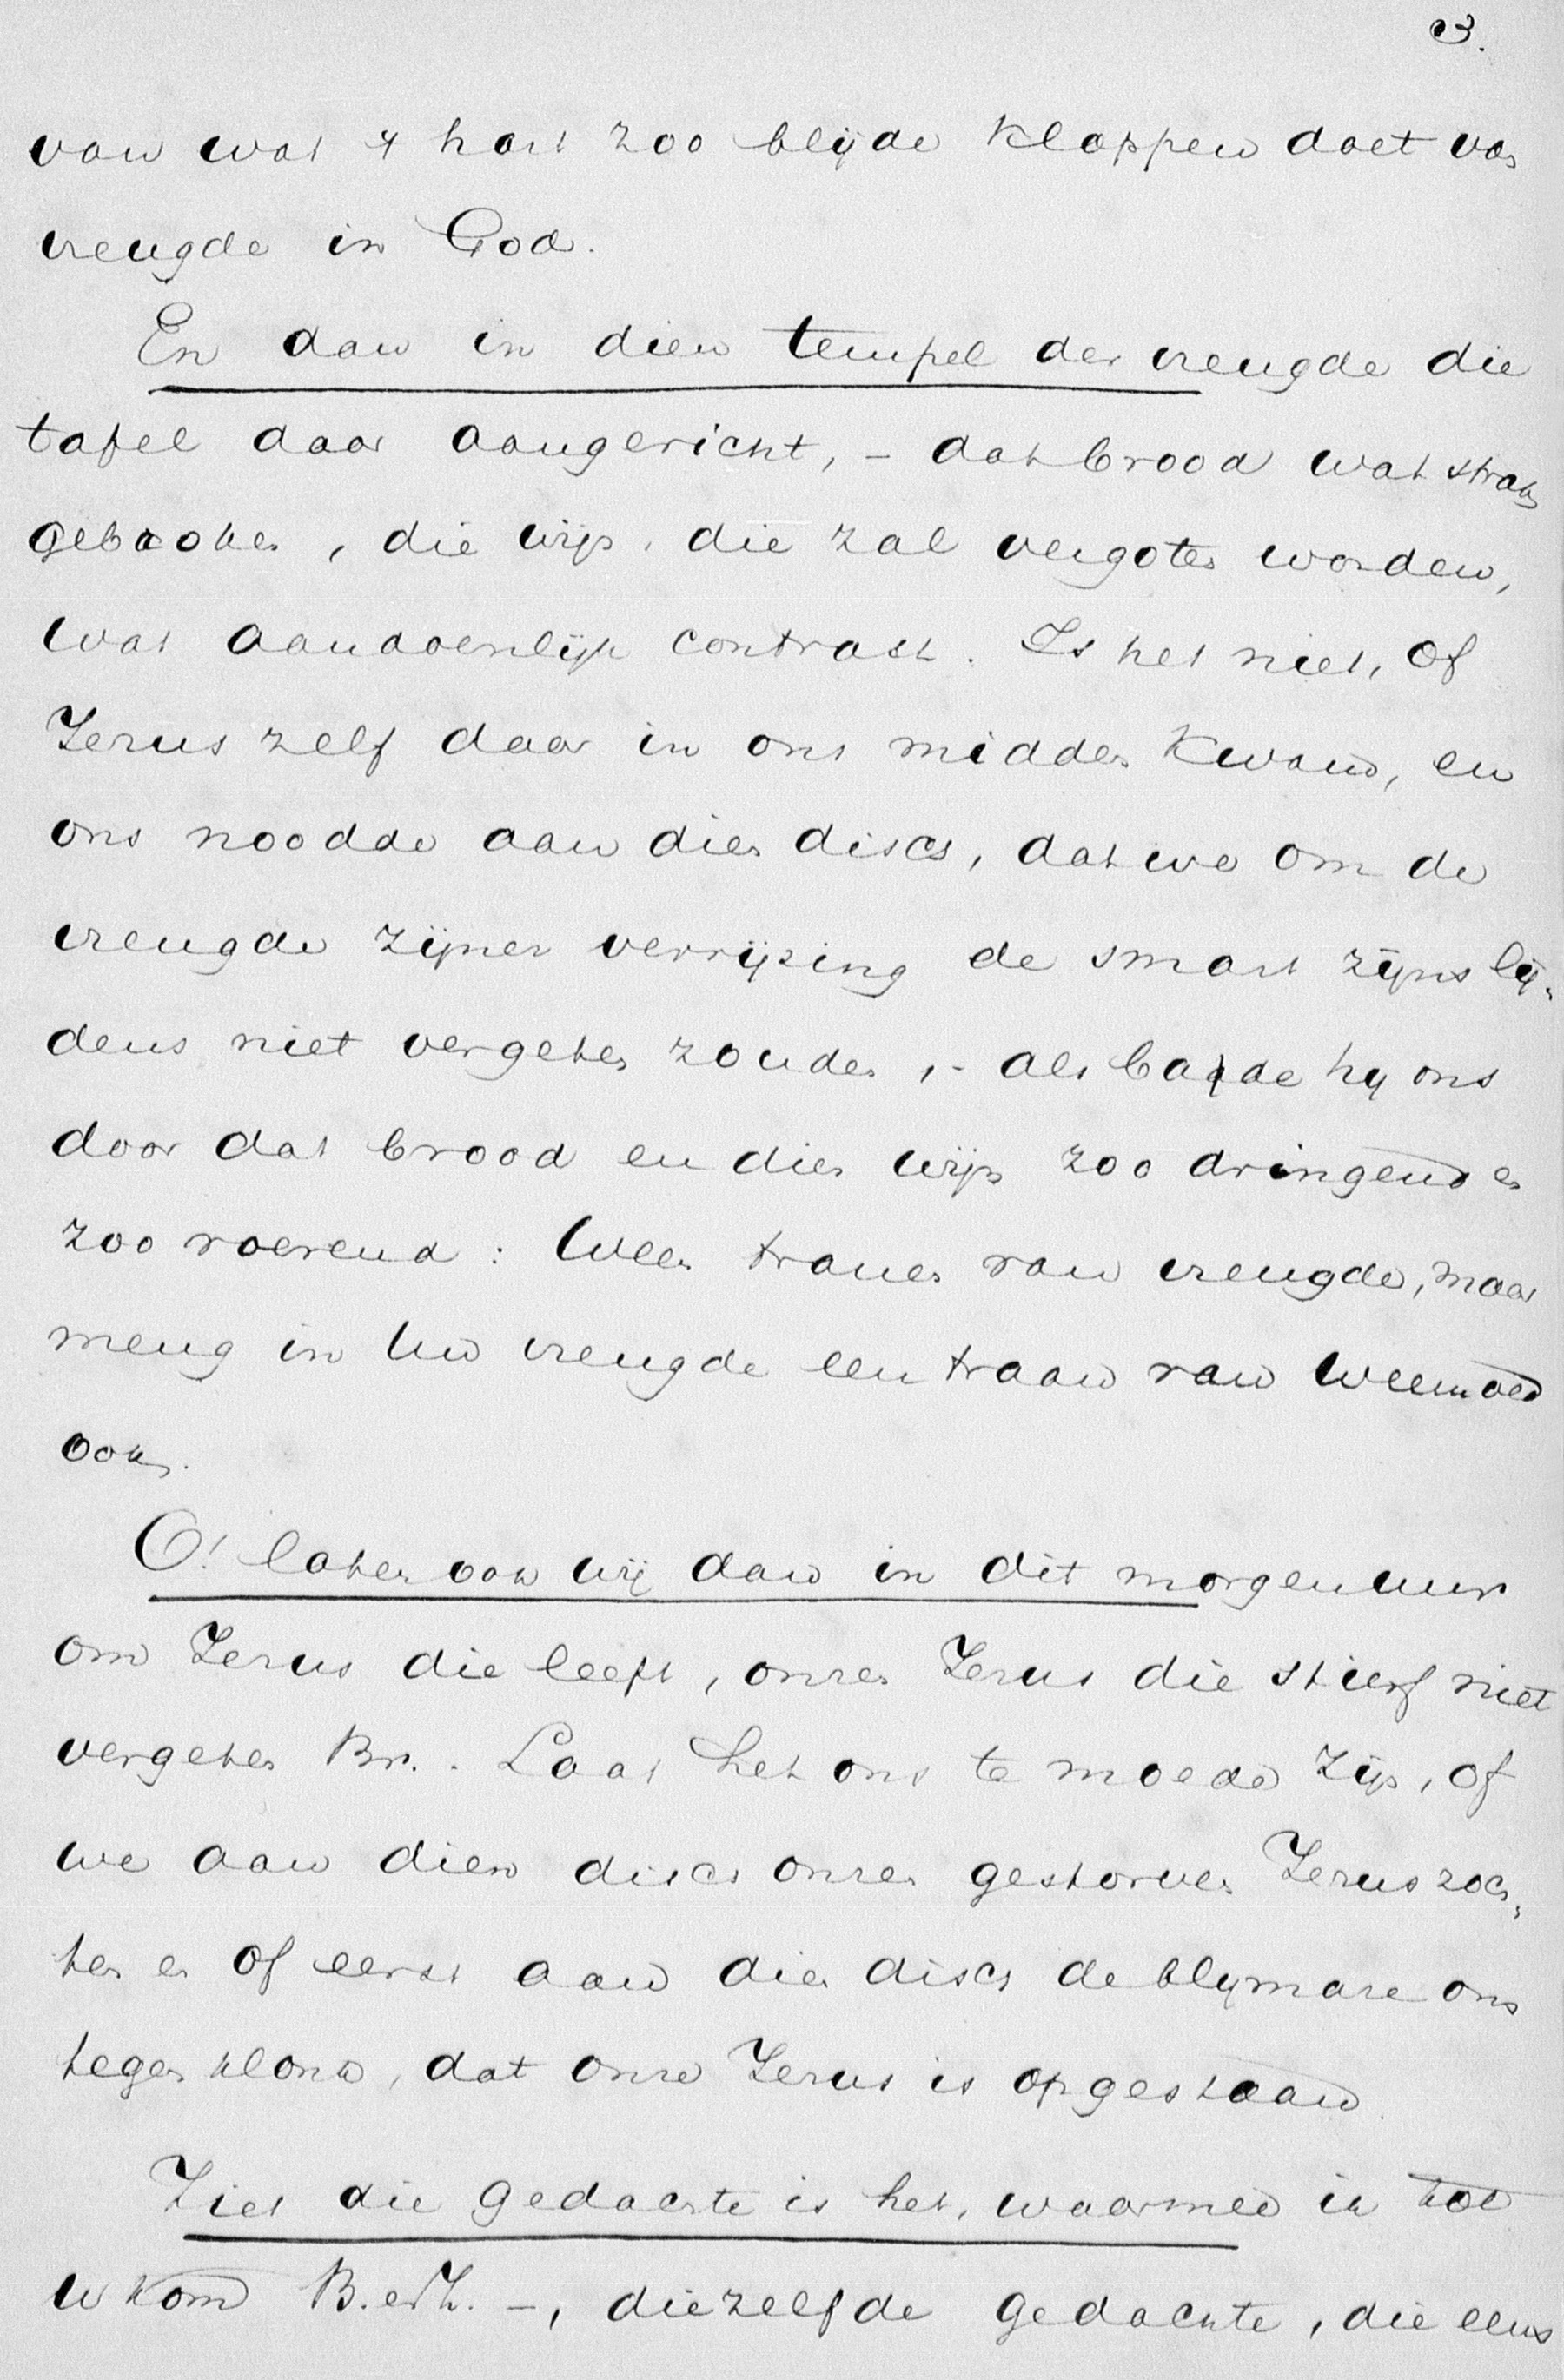 3.
van wat 't hart zoo blijde kloppen doet van
vreugde in God.
En dan in dien tempel der vreugde die
tafel daar aangericht, – dat brood wat straks
gebroken, die wijn, die zal vergoten worden,
wat aandoenlijk contrast. Is het niet, of
Jezus zelf daar in ons midden kwam, en
ons noodde aan dien disch, dat we om de
vreugde zijner verrijzing de smart zijns lij-
dens niet vergeten zouden, – als bade hij ons
door dat brood en dien wijn zoo dringend en
zoo roerend: Ween tranen van vreugde, maar
meng in Uw vreugde een traan van weemoed
ook.
O! laten ook wij dan in dit morgenuur
om Jezus die leeft, onzen Jezus die stierf niet
vergeten Br.. Laat het ons te moede zijn, of
we aan dien disch onzen gestorven Jezus zoch-
ten en of eerst aan dien disch de blijmare ons
tegen klonk, dat onze Jezus is opgestaan.
Ziet die gedachte is het, waarmee ik tot
U kom B. en Z. –, diezelfde gedachte, die eens